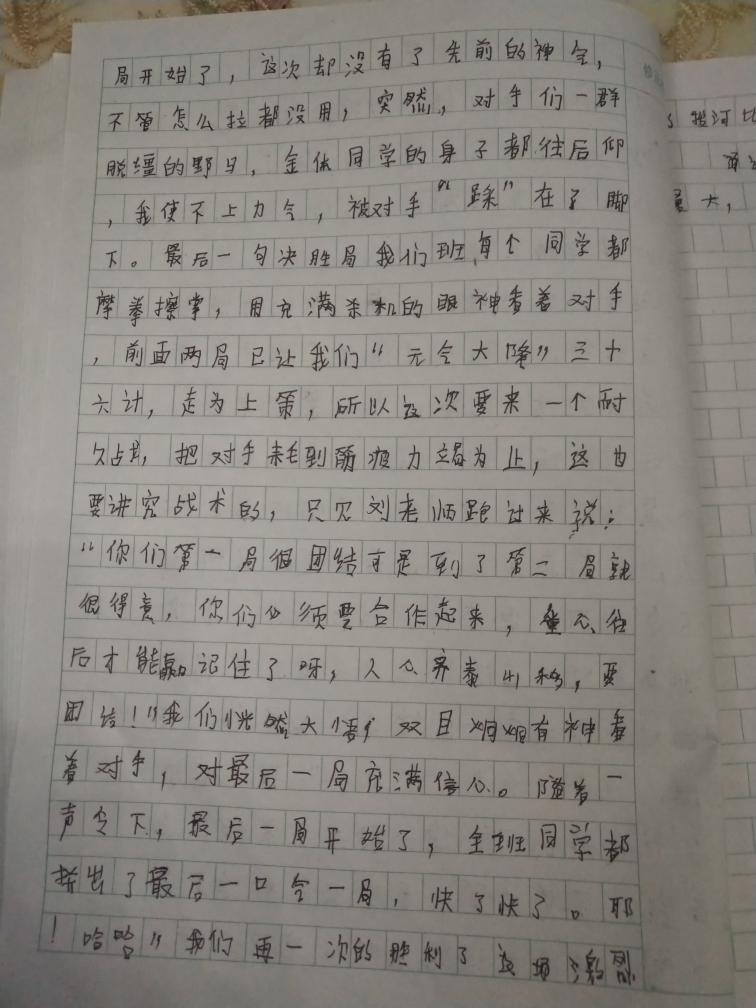 局开始了，这次却没有了先前的神气，
不管怎么拉都没用，突然，对手们一群
脱缰的野马，全体同学的身子都往后仰
，我使不上力气，被对手“踩”在了脚
下。最后一句决胜局我们班每个同学都
摩拳擦掌，用充满杀机的眼神看着对手
，前面两局已让我们“元气大降”三十
六计，走为上策，所以这次要来一个耐
久战，把对手耗到筋疲力竭为止，这也
要讲究战术的，只见刘老师跑过来说：
“你们第一局很团结可是到了第二局就
很得意，你们必须要合作起来，重心往
后才能赢记住了呀，人心齐泰山移，要
团结！”我们恍然大悟，双目炯炯有神看
着对手，对最后一局充满信心。随着一
声令下，最后一局开始了，全班同学都
拼出了最后一口气一局，快了快了。耶
！哈哈”我们再一次的胜利了这场激烈
河比
大，